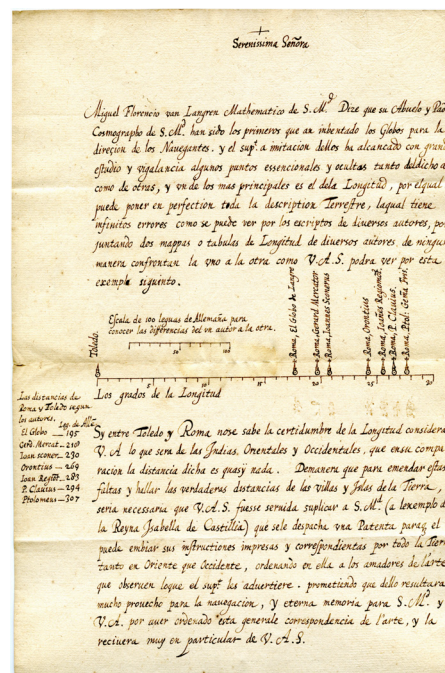 Serenissima Señora
Miguel Florencio van Langren Mathematico de S. M.d Dize que su Abuelo y Pad
Cosmographo de S. M.d han sido los primeros que an inbentado los Globos para la
direçion de los Navegantes. y el sup.te a imitacion dellos ha alcancado con grand
estudio y vigalancia algunos puntos essencionales y ocultas tanto deldicho a
como de otras, y vnde los mas principales es el dela Longitud, por elqual
puede poner en perfection toda la description Terrestre, laqual tiene
infinitos errores como se puede ver por los escriptos de diversos autores, po
juntando dos mappas o tabulas de Longitud de diversos autores de ningu
manera confrontan la vno a la otra como V. A. S. podra ver por esta
exemplo siguinto.
Escala de 100 leguas de Allemaña para
conocer las differencias del vn autor a la otra.
50
100
Toledo.
Roma, El Globo de Langre
Roma, Gerard Mercator
Roma, Ioannes Sconerus
Roma, Orontius
Roma, Ioañes Regiomõt.
Roma, P. Clavius,
Roma, Ptol:
5 10 15 20 25 30
Los grados de la Longitud
Las distancias de
Roma y Toledo segun
los autores.
Leg. de Alle.
El Globo — 195
Gerd. Mercat — 210
Ioan sconer — 230
Orontius — 269
Ioan Regior — 283
P. Clavius — 294
Ptolomeus — 307
Sy entre Toledo y Roma nose sabe la certidumbre de la Longitud considera
V. A lo que sera de las Indias, Orientales y Occidentales, que ensu compa
racion la distancia dicha es quasy nada. Demanera que para emendar estas
faltas y hallar las verdaderas distancias de las villas y Islas de la Tierra
seria necessaria que V. A. S. fuesse seruida suplicar a S. M.d (a lexemplo d
la Reyna Isabella de Castillia) que sele despache vna Patenta paraq. el
puede embiar sus instructiones impresas y correspondientas por todo la Tierr
tanto en Oriente que Occidente, ordenando en ella a los amadores de l'arte
que observen loque el sup.te les advertiere. prometiendo que dello resultara
mucho prouecho para la navegacion, y eterna memoria para S. M.d y
V. A. por auer ordenado esta generale correspondencia de l'arte, y la
reciuera muy en particular de V. A. S.